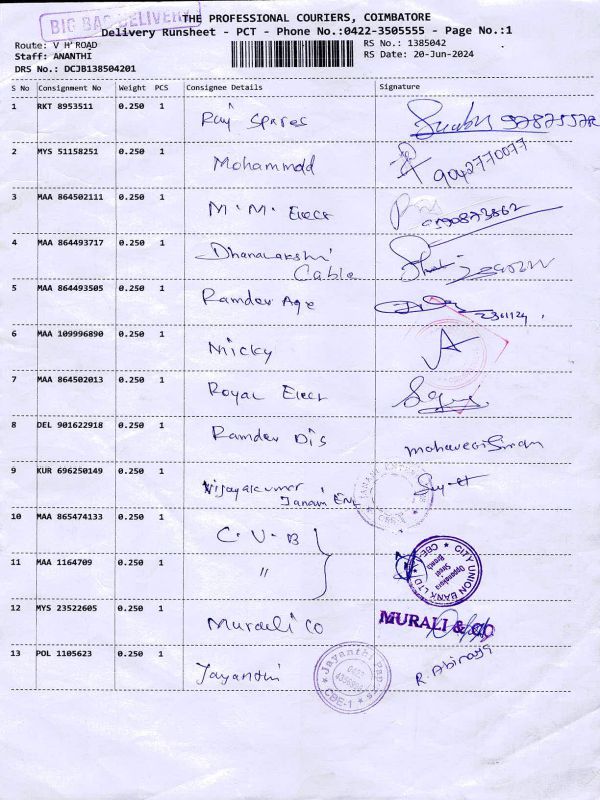 BIG BAG DELIVERY
THE PROFESSIONAL COURIERS, COIMBATORE
Delivery Runsheet - PCT - Phone No.:0422-3505555 - Page No.:1
Route: V H ROAD
Staff: ANANTHI
DRS No.: DCJB138504201
RS No.: 1385042
RS Date: 20-Jun-2024
S No Consignment No Weight PCS Consignee Details Signature
1 RKT 8953511 0.250 1 Raj Spares
2 MYS 51158251 0.250 1 Mohammdd 9042770077
3 MAA 864502111 0.250 1 M. M. Elect
4 MAA 864493717 0.250 1 Dhanalakshmi
Cable
5 MAA 864493505 0.250 1 Ramdev Age
6 MAA 109996890 0.250 1 Micky
7 MAA 864502013 0.250 1 Royal Elect
8 DEL 901622918 0.250 1 Ramdev Dis
9 KUR 696250149 0.250 1 Vijayakumar
Janani Ent
10 MAA 865474133 0.250 1 C. U. B
11 MAA 1164709 0.250 1 "
CITY UNION BANK LTD
Oppanakara
Street
Branch
CBE-1
12 MYS 23522605 0.250 1 Murali Co MURALI & CO
13 POL 1105623 0.250 1 Jayanthi R. Abinaya
Jayanthi
CBE-1